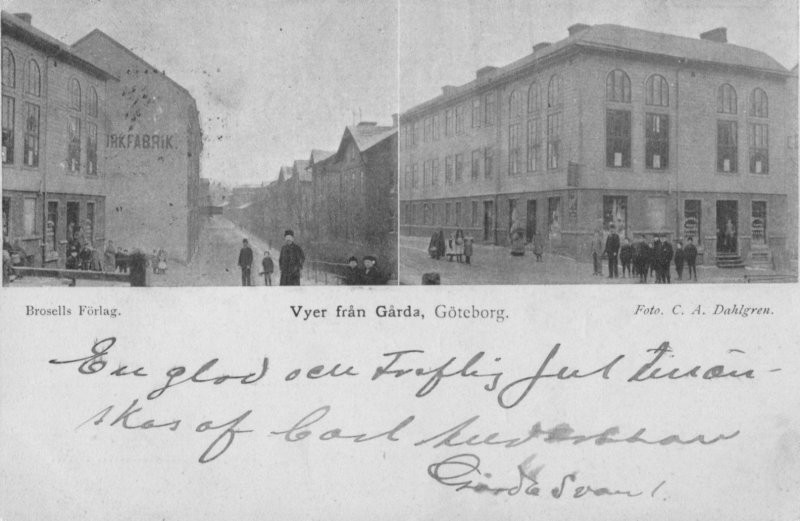 RKFABRIK.
Brosells Förlag.
Vyer från Gårda, Göteborg.
Foto. C. A. Dahlgren.
En glad och Treflig Jul tillön-
skas af Carl Andersson
Gårda